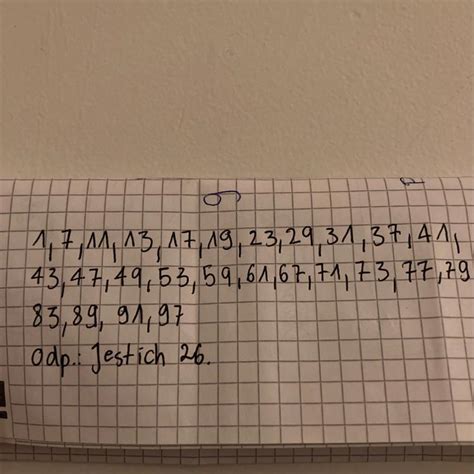 1, 7, 11, 13, 17, 19, 23, 29, 31, 37, 41,
43, 47, 49, 53, 59, 61, 67, 71, 73, 77, 79
83, 89, 91, 97
Odp.: Jest ich 26.